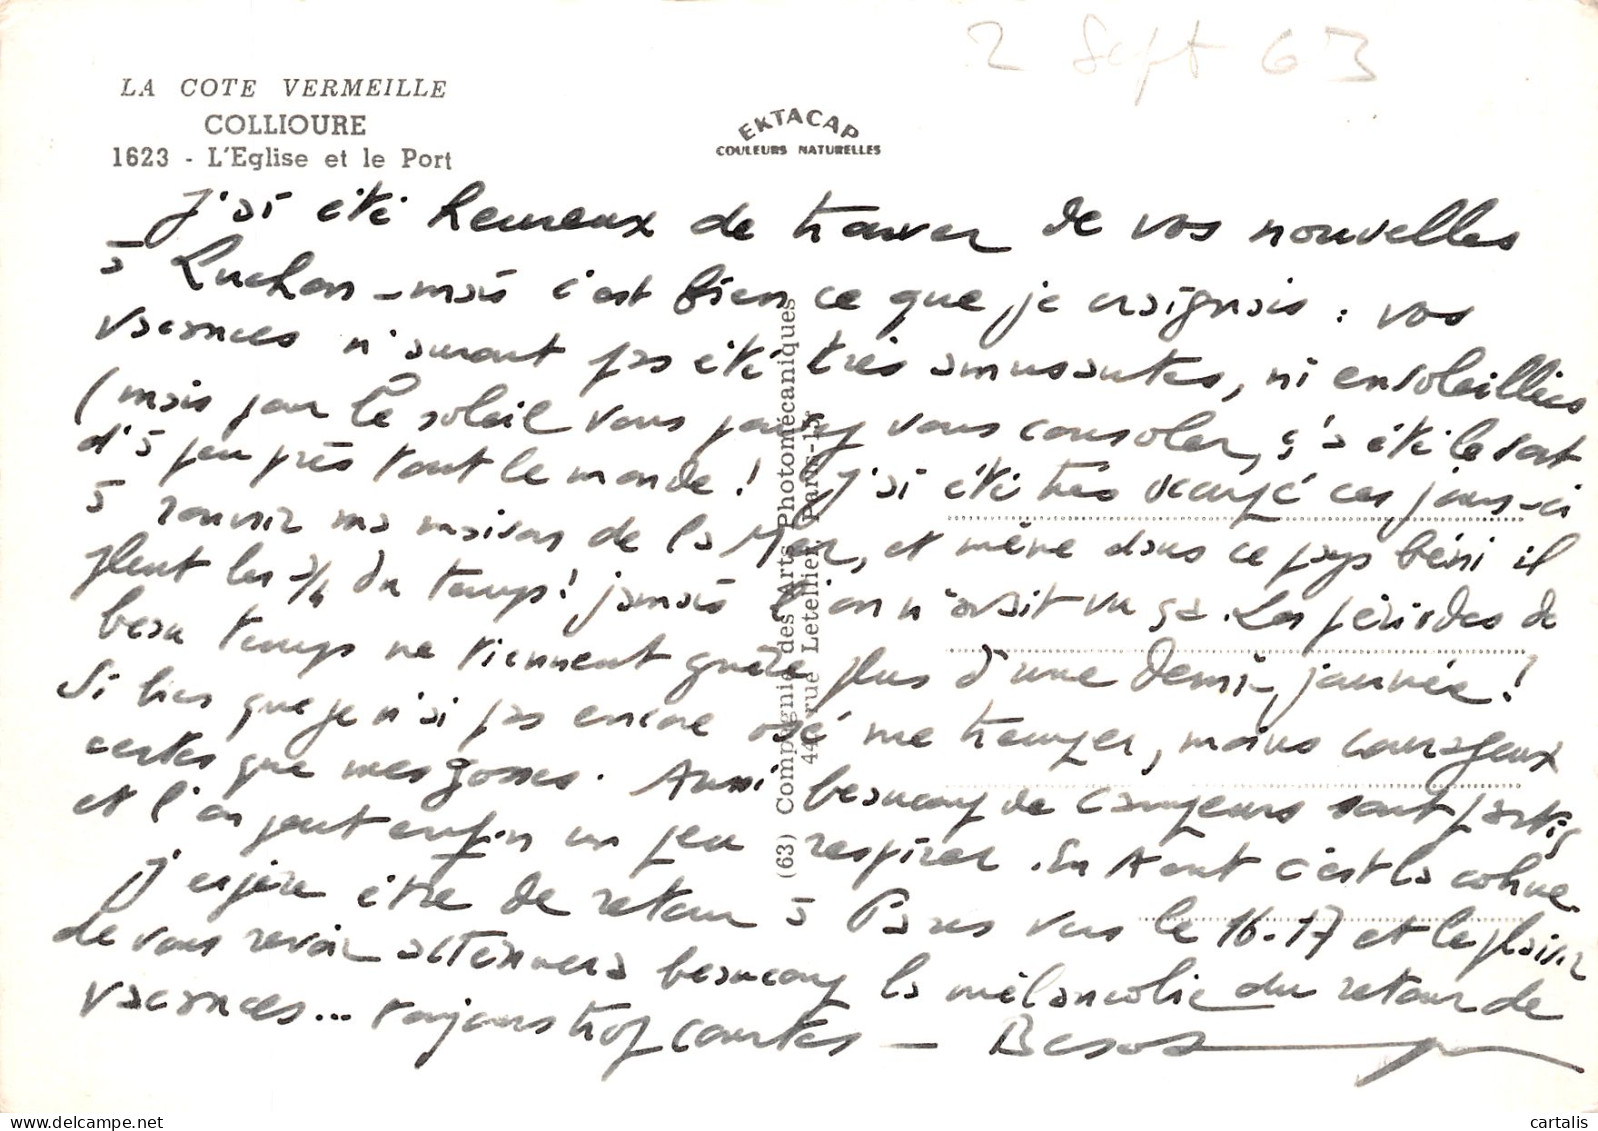 2 Sept 63
LA COTE VERMEILLE
COLLIOURE
1623 - L'Eglise et le Port
EKTACAP
COULEURS NATURELLES
J'ai été heureux de trouver de vos nouvelles
à Luchon - mais c'est bien ce que je craignais : vos
vacances n'auront pas été très amusantes, ni ensoleillées
(mais pour le soleil vous pouvez vous consoler, ç'a été le sort
d'à peu près tout le monde ! J'ai été très occupé ces jours-ci
à rouvrir ma maison de la Mer, et même dans ce pays béni il
pleut les 3/4 du temps ! jamais l'on n'avait vu ça. Les périodes de
beau temps ne viennent guère plus d'une demi-journée !
Si bien que je n'ai pas encore osé me tremper, moins courageux
certes que mes gosses. Aussi beaucoup de campeurs sont partis
et l'on peut enfin un peu respirer. En Aout c'est la cohue.
J'espère être de retour à Paris vers le 16-17 et le plaisir
de vous revoir atténuera beaucoup la mélancolie du retour de
vacances... toujours trop courtes -
(63) Compagnie des Arts Photomécaniques
44, rue Letellier, Paris-15e
cartalis